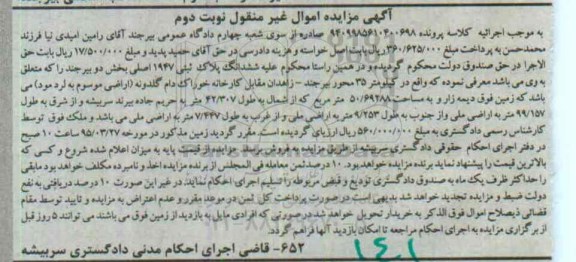 آگهی مزایده اموال غیر منقول نوبت دوم
به موجب اجرائیه کلاسه پرونده ۹۴۰۹۹۸۵۶۱۰۴۰۰۶۹۸ صادره از سوی شعبه چهارم دادگاه عمومی بیرجند آقای رامین امیدی نیا فرزند
محمدحسن به پرداخت مبلغ ۳۶۰/۶۲۵/۰۰۰ ریال بابت اصل خواسته و هزینه دادرسی در حق آقای حمید پدید و مبلغ ۱۷/۵۰۰/۰۰۰ ریال بابت حق
الاجرا در حق صندوق دولت محکوم گردیده و در همین راستا محکوم علیه ششدانگ پلاک ثبتی ۱۹۴۷ اصلی بخش دو بیرجند را که متعلق
به وی می باشد معرفی نموده که واقع در کیلومتر ۳۵ محور بیرجند - زاهدان مقابل کارخانه خوراک دام گلدونه (اراضی موسوم به لرد مود) می
باشد که زمین فوق دیمه زار و به مساحت ۵۰/۶۹۲۸۸ متر مربع که از شمال به طول ۴۲/۳۰۷ متر به حریم جاده بیرند سربیشه و از شرق به طول
۹۹/۱۵۷ متر به اراضی ملی واز جنوب به طول ۹/۲۵۳ متر به اراضی ملی و از غرب به طول ۷/۴۴۷ متر به اراضی ملی می باشد و ملک فوق توسط
کارشناس رسمی دادگستری به مبلغ ۵۶۰/۰۰۰/۰۰۰ ریال ارزیابی گردیده است. مقرر گردید زمین مذکور در مورخه ۹۵/۰۳/۲۷ ساعت ۱۰ صبح
در دفتر اجرای احکام حقوقی دادگستری سربیشه از طریق مزایده به فروش برسد. مزایده از قیمت پایه به میزان اعلام شده شروع و کسی که
بالاترین قیمت را پیشنهاد نماید برنده مزایده خواهد بود. ۱۰ درصد ثمن معامله فی المجلس از برنده مزایده اخذ و نامبرده مکلف خواهد بود مابقی
را حداکثر ظرف یک ماه به صندوق دادگستری تودیع و قبض مربوطه را تسلیم اجرای احکام نماید در غیر این صورت ۱۰ درصد دریافتی به نفع
دولت ضبط و مزایده تجدید خواهد شد بدیهی است در صورت پرداخت کل ثمن در موعد مقرر و عدم اعتراض به مزایده و تایید توسط مقام
قضائی ذیصلاح اموال فوق الذکر به خریدار تحویل خواهد شد در صورتی که افرادی مایل به بازدید از زمین فوق می باشند می توانند ۵ روز قبل
از برگزاری مزایده به اجرای احکام مراجعه تا امکان بازدید آنها فراهم گردد.
۶۵۲- قاضی اجرای احکام مدنی دادگستری سربیشه
۱۴۱